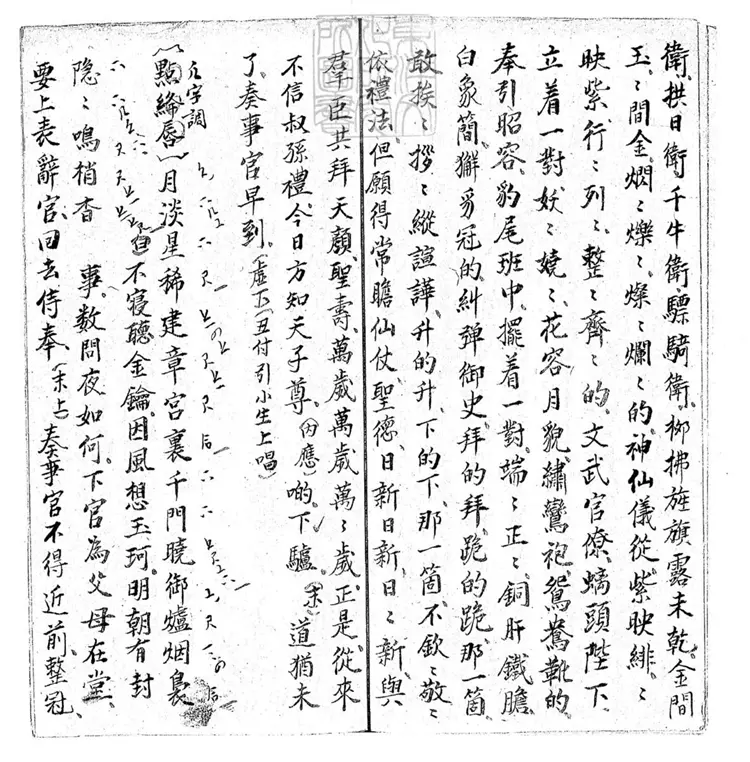 衛、拱日衛、千牛衛、驃騎衛、柳拂旌旗露未乾、金間
玉、玉間金、熌熌爍爍、燦燦爛爛的神仙儀從、紫映緋、緋
映紫、行行列列、整整齊齊的文武官僚、螭頭陛下、
立着一對妖妖嬈嬈、花容月貌、繡鸞袍、鴛鴦靴的
奉引昭容、豹尾班中、擺着一對端端正正、銅肝鐵膽、
白象簡、獬豸冠的糾彈御史、拜的拜、跪的跪、那一箇
敢挨挨拶拶縱諠譁、升的升、下的下、那一箇不欽欽敬敬
依禮法、但願得常瞻仙仗、聖德日新日新日日新、與
羣臣共拜天顏、聖壽萬歲萬歲萬萬歲、正是從來
不信叔孫禮、今日方知天子尊、(內應)喲、下驢、(末)道猶未
了、奏事官早到、(虛下)(丑付引小生上唱)
點絳唇 月淡星稀建章宮裏千門曉御爐烟裊
隱隱鳴梢杳 不寢聽金鑰、因風想玉珂、明朝有封
事、數問夜如何、下官為父母在堂、
要上表辭官、回去侍奉、(末上)奏事官不得近前、整冠、